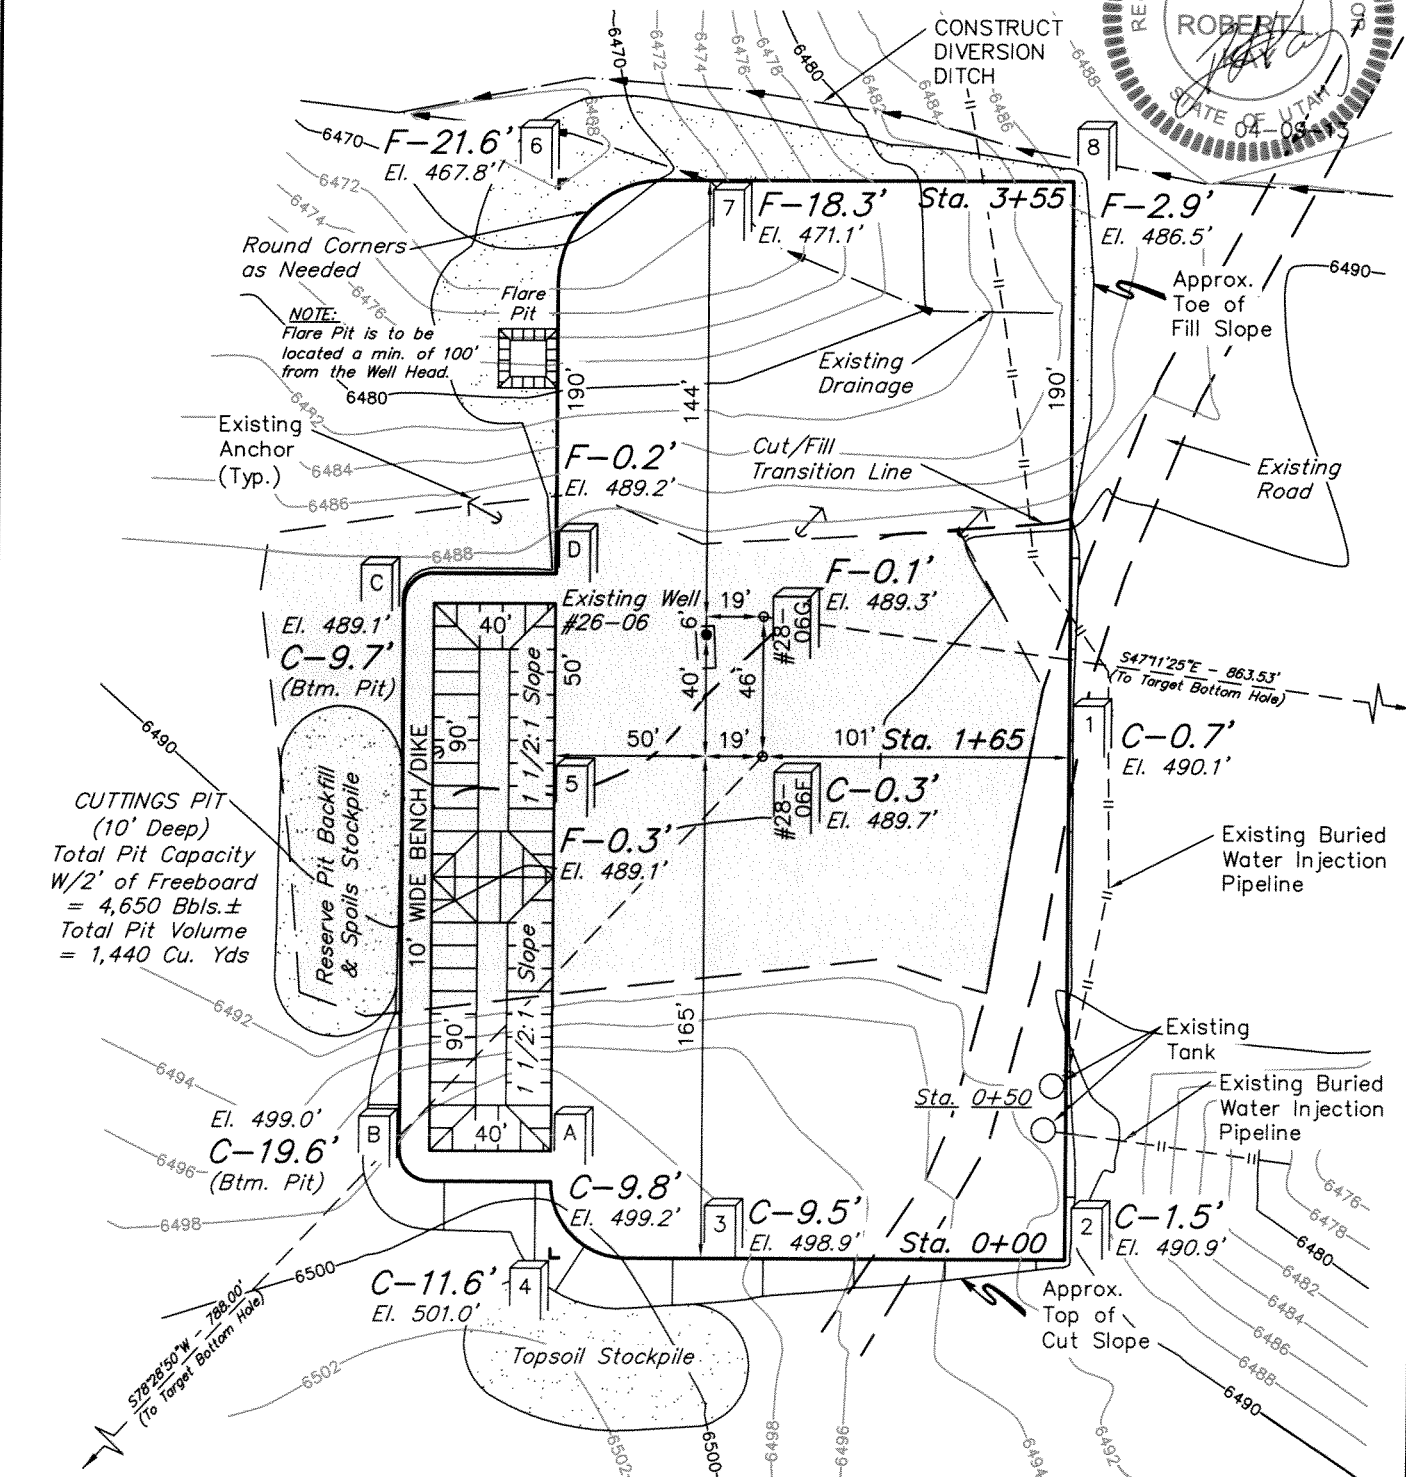 CONSTRUCT
DIVERSION
DITCH
ROBERT L.
KAY
STATE OF UTAH
04-09-13
6470
6472
6474
6476
6478
6480
6482
6484
6486
6488
6468
6470
6472
6474
6476
F-21.6'
El. 467.8'
6
8
7
F-18.3'
El. 471.1'
Sta. 3+55
F-2.9'
El. 486.5'
Round Corners
as Needed
Flare
Pit
NOTE:
Flare Pit is to be
located a min. of 100'
from the Well Head.
6480
6482
6484
6486
6488
6490
Approx.
Toe of
Fill Slope
Existing
Drainage
190'
144'
190'
Existing
Anchor
(Typ.)
F-0.2'
El. 489.2'
Cut/Fill
Transition Line
Existing
Road
D
C
El. 489.1'
C-9.7'
(Btm. Pit)
Existing Well
#26-06
F-0.1'
El. 489.3'
#28-
06G
19'
6'
40'
46'
40'
50'
1 1/2:1 Slope
90'
S47°11'25"E - 863.53'
(To Target Bottom Hole)
6490
50'
19'
101'
Sta. 1+65
1
C-0.7'
El. 490.1'
5
F-0.3'
El. 489.1'
#28-
06F
C-0.3'
El. 489.7'
CUTTINGS PIT
(10' Deep)
Total Pit Capacity
W/2' of Freeboard
= 4,650 Bbls.±
Total Pit Volume
= 1,440 Cu. Yds
Reserve Pit Backfill
& Spoils Stockpile
10' WIDE BENCH/DIKE
Existing Buried
Water Injection
Pipeline
1 1/2:1 Slope
90'
165'
6492
6494
6496
6498
Existing
Tank
Sta. 0+50
Existing Buried
Water Injection
Pipeline
El. 499.0'
C-19.6'
(Btm. Pit)
B
40'
A
C-9.8'
El. 499.2'
3
C-9.5'
El. 498.9'
Sta. 0+00
2
C-1.5'
El. 490.9'
6476
6478
6480
6482
6484
6486
6488
6490
6500
C-11.6'
El. 501.0'
4
Approx.
Top of
Cut Slope
S78°28'50"W - 788.00'
(To Target Bottom Hole)
6502
Topsoil Stockpile
6502
6500
6498
6496
6494
6492